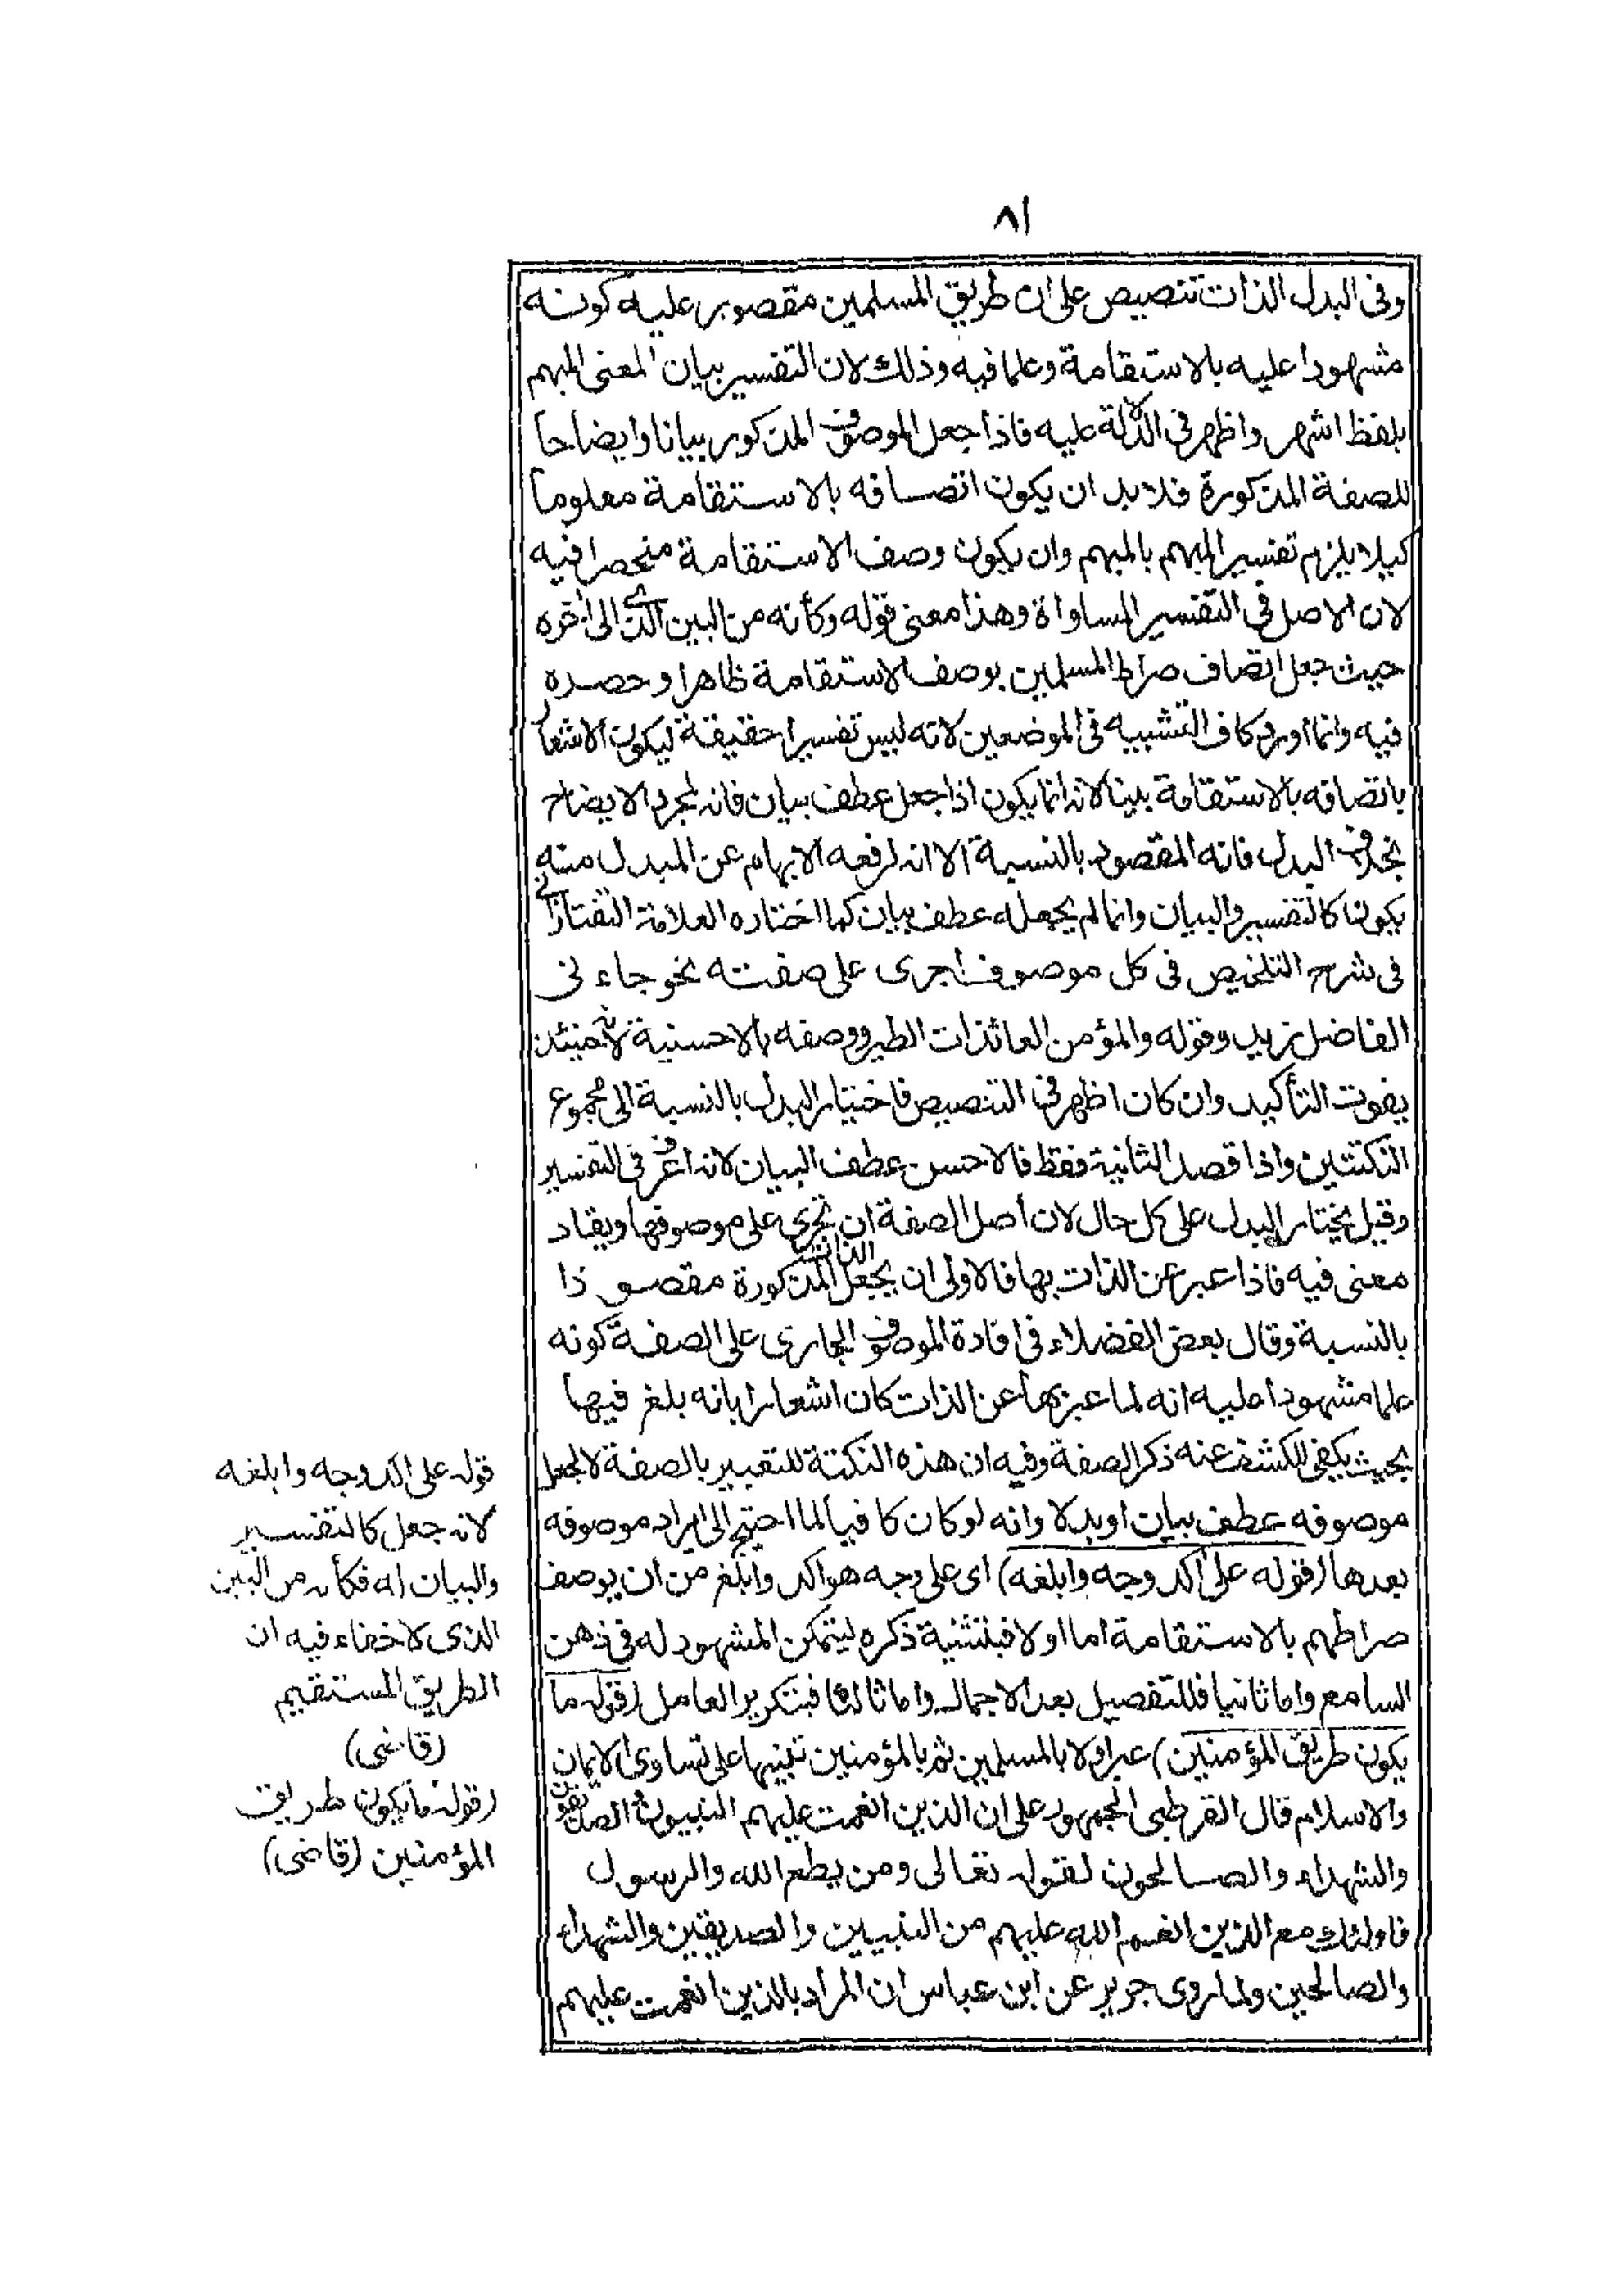 ٨١
وفى البدل الذات تنصيص على ان طريق المسلمين مقصور عليه كونه
مشهودا عليه بالاستقامة وعلما فيه وذلك لان التفسير بيان المعنى المبهم
بلفظ اشهر واظهر فى الدلالة عليه فاذا جعل الموصوف المذكور بيانا وايضاحا
للصفة المذكورة فلا بد ان يكون اتصافه بالاستقامة معلوما
كيلا يلزم تفسير المبهم بالمبهم وان يكون وصف الاستقامة منحصرا فيه
لان الاصل فى التفسير المساواة وهذا معنى قوله وكأنه من البين الذى الى أخره
حيث جعل اتصاف صراط المسلمين بوصف الاستقامة ظاهرا وحصده
فيه وانما اورد كاف التشبيه فى الموضعين لانه ليس تفسيرا حقيقة ليكون الاشعار
باتصافه بالاستقامة بينا لانه انما يكون اذا جعل عطف بيان فانه لمجرد الايضاح
بخلاف البدل فانه المقصود بالنسبة الا انه لرفعه الابهام عن المبدل منه
يكون كالتفسير والبيان وانما لم يجعله عطف بيان كما اختاره العلامة التفتازانى
فى شرح التلخيص فى كل موصوف اجرى على صفته نحو جاءنى
الفاضل زيد وقوله والمؤمن العائذات الطير ووصفه بالاحسنية لانه حينئذ
يفوت التأكيد وان كان اظهر فى التنصيص فاختيار البدل بالنسبة الى مجموع
النكتتين واذا قصد الثانية فقط فالاحسن عطف البيان لانه اعرف فى التفسير
وقيل يختار البدل على كل حال لان اصل الصفة ان تجرى على موصوفها ويقاد
معنى فيه فاذا عبر عن الذات بها فالاولى ان يجعل الذات المذكورة مقصو ذا
بالنسبة وقال بعض الفضلاء فى افادة الموصوف الجارى على الصفة كونه
علما مشهودا عليه انه لما عبر بها عن الذات كان اشعارا بانه بلغ فيها
بحيث يكفى للكشف عنه ذكر الصفة وفيه ان هذه النكتة للتعبير بالصفة لا لجعل
موصوفه عطف بيان او بدلا وانه لو كان كافيا لما احتيج الى ايراد موصوفه
بعدها (قوله على اكد وجه وابلغه) اى على وجه هو اكد وابلغ من ان يوصف
صراطهم بالاستقامة اما اولا فبتثنية ذكره ليتمكن المشهود له فى ذهن
السامع واما ثانيا فللتفصيل بعد الاجمال واما ثالثا فبتكرير العامل (قوله ما
يكون طريق المؤمنين) عبر اولا بالمسلمين ثم بالمؤمنين تنبيها على تساوى الايمان
والاسلام قال القرطبى الجمهور على ان الذين انعمت عليهم النبيون والصديقون
والشهداء والصالحون لقوله تعالى ومن يطع الله والرسول
فاولئك مع الذين انعم الله عليهم من النبيين والصديقين والشهداء
والصالحين ولما روى جرير عن ابن عباس ان المراد بالذين انعمت عليهم
قوله على اكد وجه وابلغه
لانه جعل كالتفسير
والبيان له فكأنه من البين
الذى لا خفاء فيه ان
الطريق المستقيم
(قاضى)
(قوله ما يكون طريق
المؤمنين (قاضى)